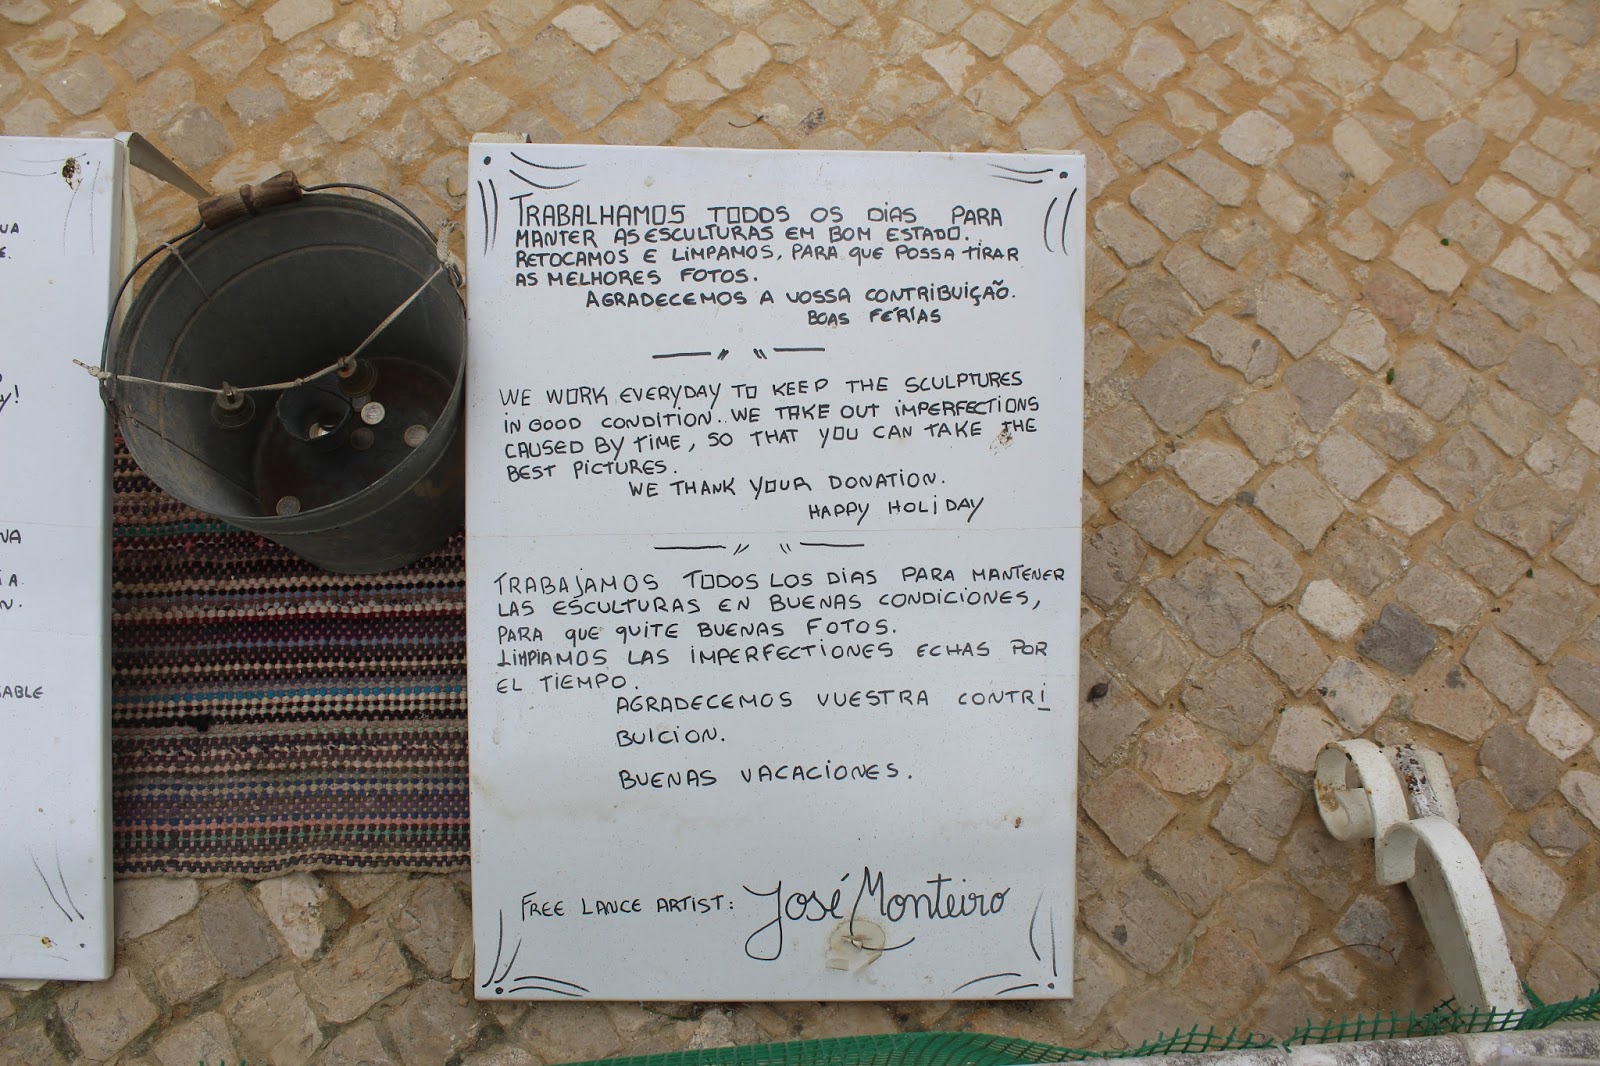 TRABALHAMOS TODOS OS DIAS PARA
MANTER AS ESCULTURAS EM BOM ESTADO.
RETOCAMOS E LIMPAMOS, PARA QUE POSSA TIRAR
AS MELHORES FOTOS.
AGRADECEMOS A VOSSA CONTRIBUIÇÃO.
BOAS FÉRIAS
WE WORK EVERYDAY TO KEEP THE SCULPTURES
IN GOOD CONDITION. WE TAKE OUT IMPERFECTIONS
CAUSED BY TIME, SO THAT YOU CAN TAKE THE
BEST PICTURES.
WE THANK YOUR DONATION.
HAPPY HOLIDAY
TRABAJAMOS TODOS LOS DIAS PARA MANTENER
LAS ESCULTURAS EN BUENAS CONDICIONES,
PARA QUE QUITE BUENAS FOTOS.
LIMPIAMOS LAS IMPERFECTIONES ECHAS POR
EL TIEMPO.
AGRADECEMOS VUESTRA CONTRI
BUICION.
BUENAS VACACIONES.
FREE LANCE ARTIST: José Monteiro